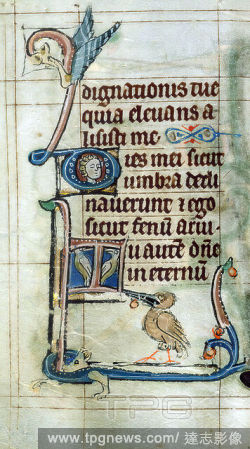 dignationis tue
quia elevans al
lisisti me
Dies mei sicut
umbra decli
naverunt et ego
sicut fenū arui
Tu autē dn̄e
in eternū
TPG
www.tpgnews.com/ 達志影像